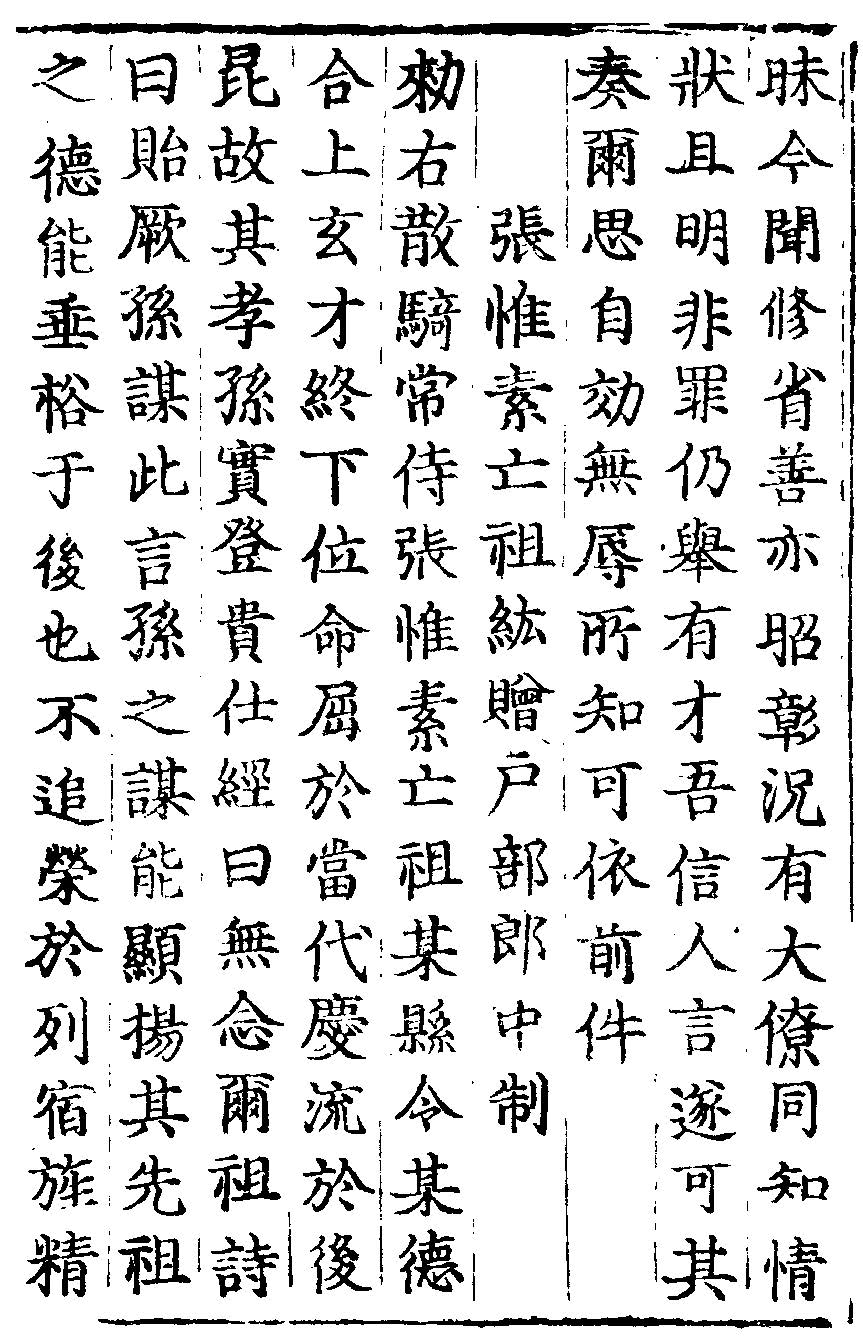 昧今聞修省善亦昭彰況有大僚同知情
狀且明非罪仍舉有才吾信人言遂可其
奏爾思自効無辱所知可依前件
張惟素亡祖紘贈戸部郎中制
勑右散騎常侍張惟素亡祖某縣令某德
合上玄才終下位命屈於當代慶流於後
昆故其孝孫實登貴仕經曰無念爾祖詩
曰貽厥孫謀此言孫之謀能顯揚其先祖
之德能垂裕于後也不追榮於列宿旌精